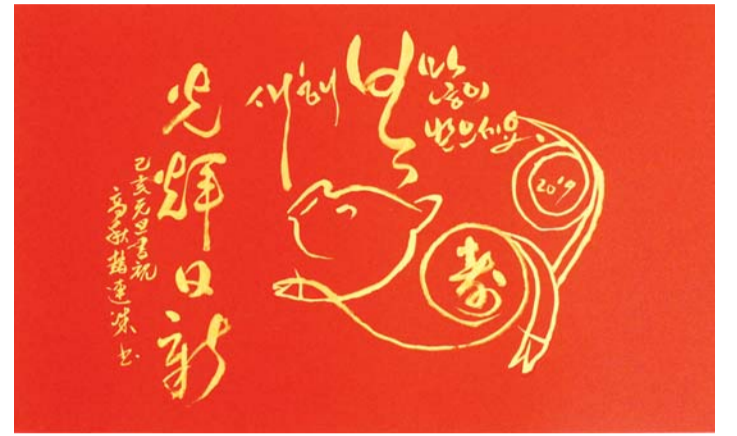 새해 복
많이
받으세요.
2019
壽
光輝日新
己亥元旦書祝